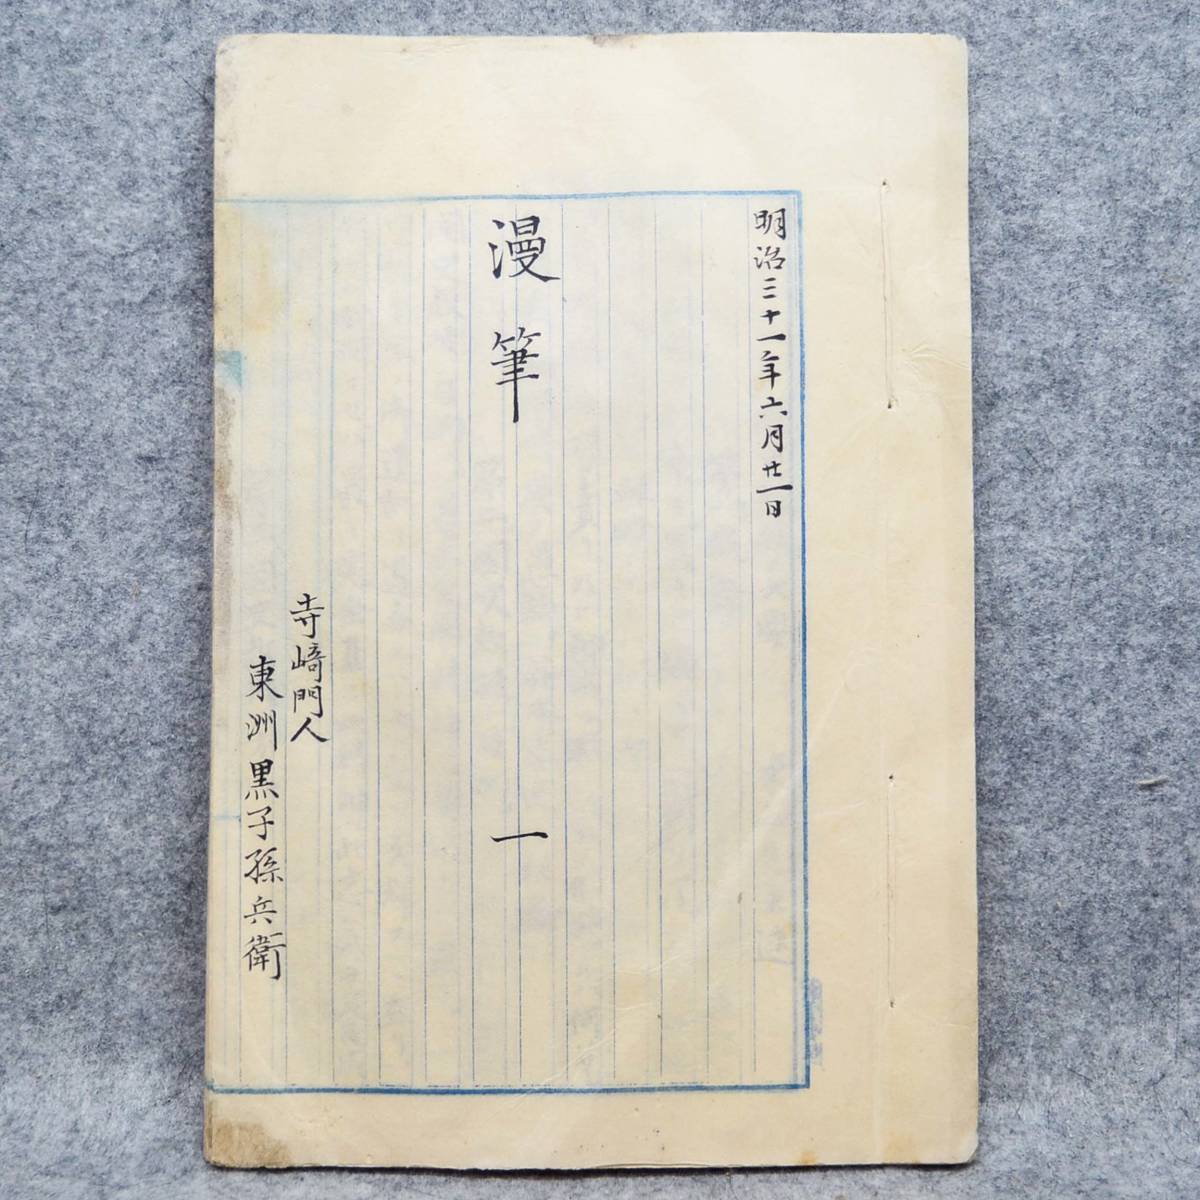 明治三十一年六月廿一日
漫筆 一
寺﨑門人
東洲黒子孫兵衛